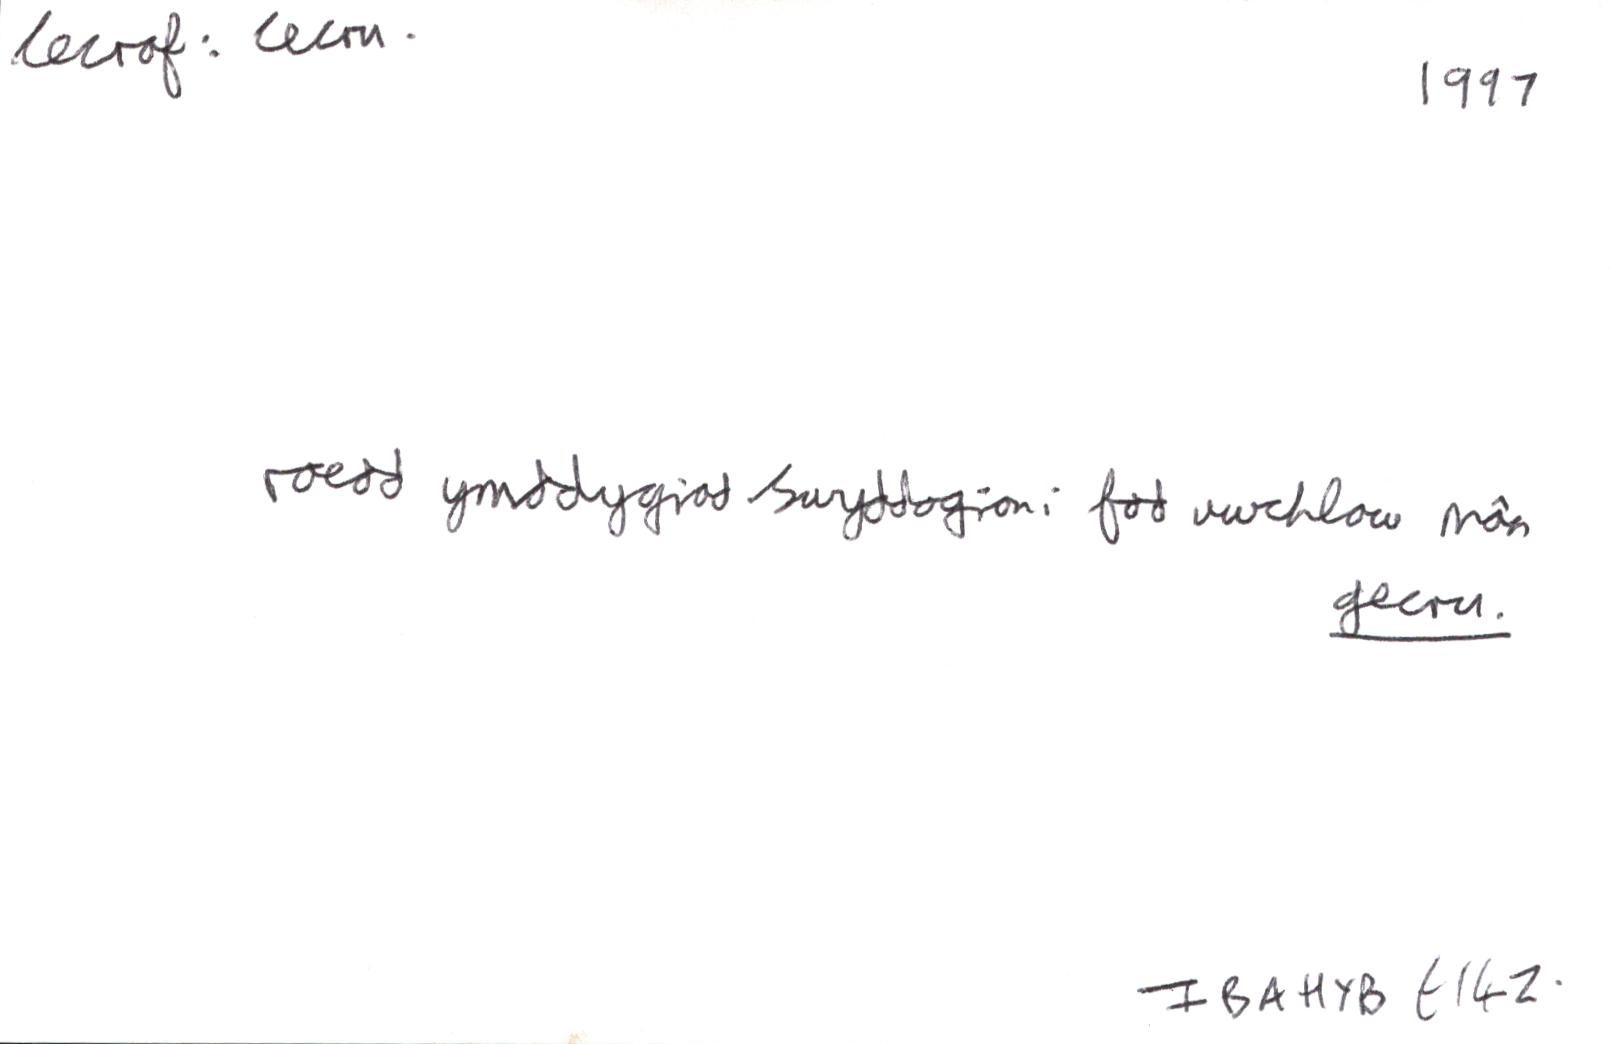 cecraf: cecru.
1997
roedd ymddygiad swyddogion i fod uwchlaw mân
gecru.
IBAHYB t142.